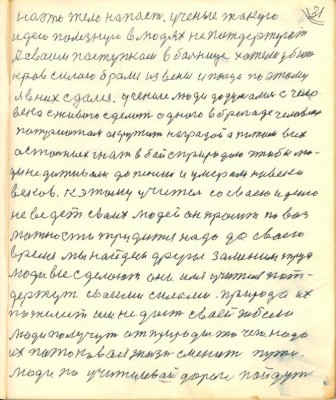 31
ученые такую
идею полезную в людях не поддержуют
А своим поступкам в больнице хотели убить
кров силой брали из вены и пища поэтому
я в них сдался. ученые люди додумалися с чело
века живого сделать одного в бригаде человека
наградой а потом всех
остальных гнать в бой с природою чтобы лю-
ди не доживали до пенсии и умирали на веки
веков. К этому учится со своею идеею
не ведет своих людей он просит по воз
можности придется надо до своего
время мы найдем другое заменим
люди вые сделают они имя учителя подт-
держут своими силами. природа их
пожалеет им не даст своей гибели
люди получут от природы то чего надо
их поток сменит путь.
люди по учителевой дороге пойдут